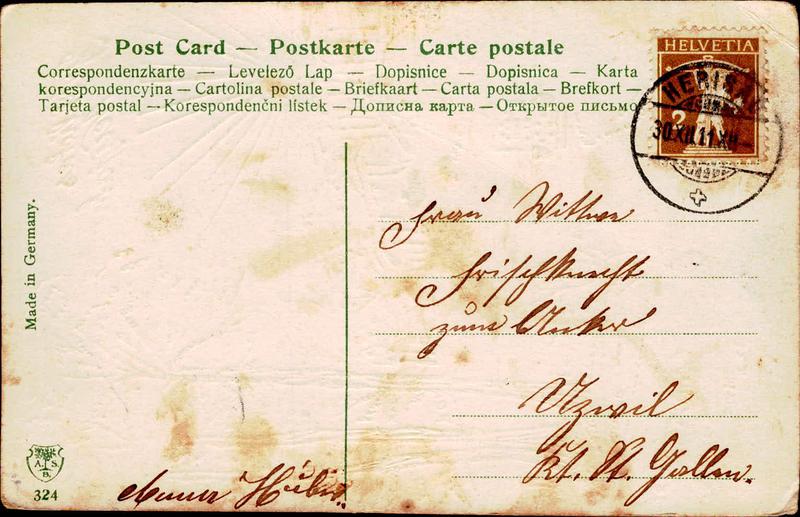 Post Card — Postkarte — Carte postale
Correspondenzkarte — Levelező Lap — Dopisnice — Dopisnica — Karta
korespondencyjna — Cartolina postale — Briefkaart — Carta postala — Brefkort —
Tarjeta postal — Korespondenční lístek — Дописна карта — Открытое письмо
HELVETIA
2
HERISAU
30.XII.11.XII
Made in Germany.
Frau Wittwe
Frischknecht
zum Anker
Uzwil
Kt. St. Gallen.
A. S.
B.
324
Huber.